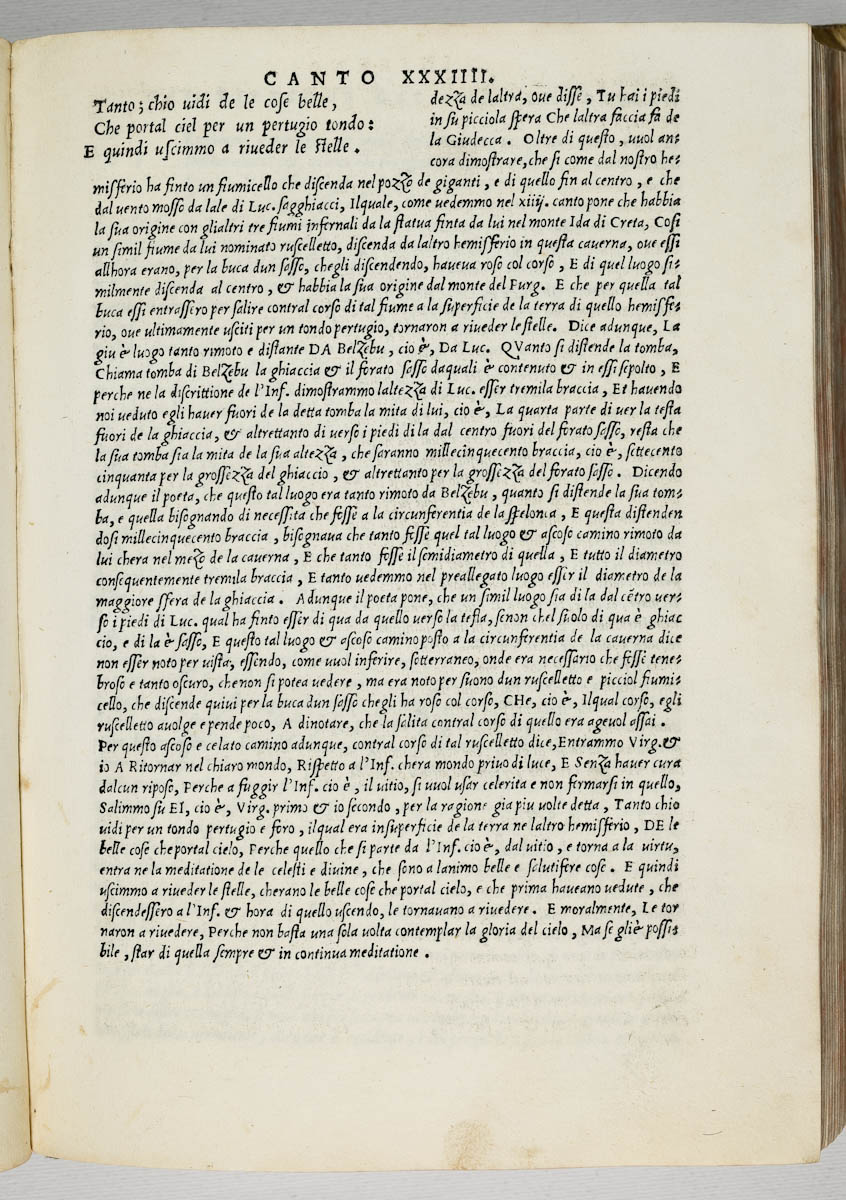 CANTO XXXIIII.
Tanto; chio uidi de le cose belle,
Che portal ciel per un pertugio tondo:
E quindi uscimmo a riueder le stelle.
dezza de laltra, oue disse, Tu hai i piedi
in su picciola spera Che laltra faccia fa de
la Giudecca. Oltre di questo, uuol an-
cora dimostrare, che si come dal nostro he-
misferio ha finto un fiumicello che discenda nel pozzo de giganti, e di quello fin al centro, e che
dal uento mosso da lale di Luc. sagghiacci, Ilquale, come uedemmo nel xiiij. canto pone che habbia
la sua origine con glialtri tre fiumi infernali da la statua finta da lui nel monte Ida di Creta, Cosi
un simil fiume da lui nominato ruscelletto, discenda da laltro hemisferio in questa cauerna, oue essi
allhora erano, per la buca dun sasso, chegli discendendo, haueua roso col corso, E di quel luogo si-
milmente discenda al centro, & habbia la sua origine dal monte del Purg. E che per quella tal
buca essi entrassero per salire contral corso di tal fiume a la superficie de la terra di quello hemisfe-
rio, oue ultimamente usciti per un tondo pertugio, tornaron a riueder le stelle. Dice adunque, La
giu è luogo tanto rimoto e distante DA Belzebu, cio è, Da Luc. QVanto si distende la tomba,
Chiama tomba di Belzebu la ghiaccia & il forato sasso daquali è contenuto & in essi sepolto, E
perche ne la discrittione de l'Inf. dimostrammo laltezza di Luc. esser tremila braccia, Et hauendo
noi ueduto egli hauer fuori de la detta tomba la mita di lui, cio è, La quarta parte di uer la testa
fuori de la ghiaccia, & altrettanto di uerso i piedi di la dal centro fuori del forato sasso, resta che
la sua tomba sia la mita de la sua altezza, che saranno millecinquecento braccia, cio è, settecento
cinquanta per la grossezza del ghiaccio, & altrettanto per la grossezza del forato sasso. Dicendo
adunque il poeta, che questo tal luogo era tanto rimoto da Belzebu, quanto si distende la sua tom-
ba, e quella bisognando di necessita che fosse a la circunferentia de la spelonca, E questa distenden
dosi millecinquecento braccia, bisognaua che tanto fosse quel tal luogo & ascoso camino rimoto da
lui chera nel mezo de la cauerna, E che tanto fosse il semidiametro di quella, E tutto il diametro
consequentemente tremila braccia, E tanto uedemmo nel preallegato luogo esser il diametro de la
maggiore sfera de la ghiaccia. Adunque il poeta pone, che un simil luogo sia di la dal cẽtro uer-
so i piedi di Luc. qual ha finto esser di qua da quello uerso la testa, senon chel suolo di qua è ghiac
cio, e di la è sasso, E questo tal luogo & ascoso camino posto a la circunferentia de la cauerna dice
non esser noto per uista, essendo, come uuol inferire, sotterraneo, onde era necessario che fosse tene-
broso e tanto oscuro, che non si potea uedere, ma era noto per suono dun ruscelletto e picciol fiumi-
cello, che discende quiui per la buca dun sasso chegli ha roso col corso, CHe, cio è, Ilqual corso, egli
ruscelletto auolge e pende poco, A dinotare, che la salita contral corso di quello era ageuol assai.
Per questo ascoso e celato camino adunque, contral corso di tal ruscelletto dice, Entrammo Virg. &
io A Ritornar nel chiaro mondo, Rispetto a l'Inf. chera mondo priuo di luce, E Senza hauer cura
dalcun riposo, Perche a fuggir l'Inf. cio è, il uitio, si uuol usar celerita e non fermarsi in quello,
Salimmo su EI, cio è, Virg. primo & io secondo, per la ragione gia piu uolte detta, Tanto chio
uidi per un tondo pertugio e foro, ilqual era in superficie de la terra ne laltro hemisferio, DE le
belle cose che portal cielo, Perche quello che si parte da l'Inf. cio è, dal uitio, e torna a la uirtu,
entra ne la meditatione de le celesti e diuine, che sono a lanimo belle e salutifere cose. E quindi
uscimmo a riueder le stelle, cherano le belle cose che portal cielo, e che prima haueano uedute, che
discendessero a l'Inf. & hora di quello uscendo, le tornauano a riuedere. E moralmente, Le tor
naron a riuedere, Perche non basta una sola uolta contemplar la gloria del cielo, Ma se gliè possi-
bile, star di quella sempre & in continua meditatione.